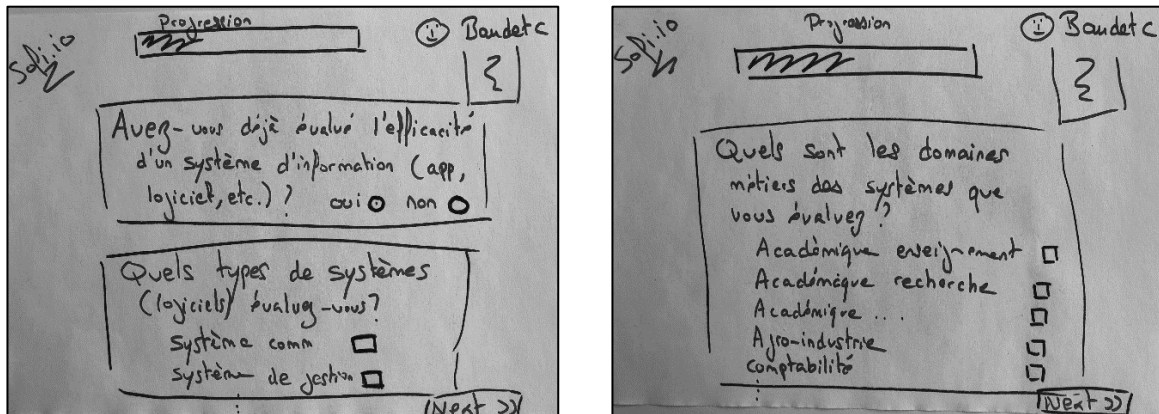 Progression
Sofi.io
Baudet C
Avez-vous déjà évalué l'efficacité
d'un système d'information (app,
logiciel, etc.) ? oui non
Quels types de systèmes
(logiciels) évaluez-vous?
Système comm
Système de gestion
Next >>
Progression
Sofi.io
Baudet C
Quels sont les domaines
métiers des systèmes que
vous évaluez ?
Académique enseignement
Académique recherche
Académique ...
Agro-industrie
comptabilité
Next >>